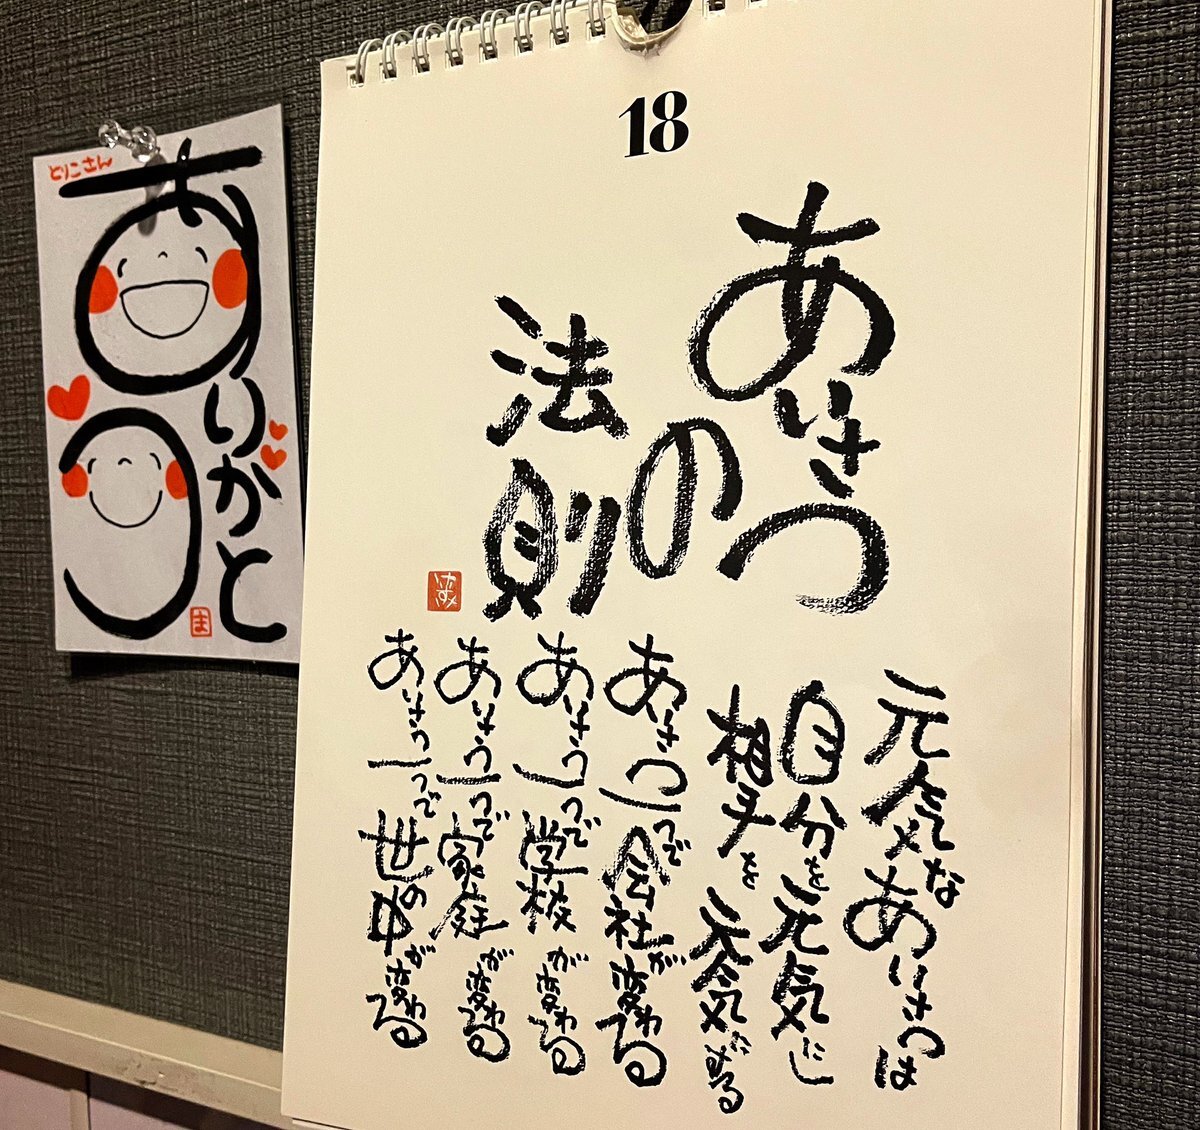 18
あいさつ
の
法則
元気なあいさつは
自分を元気にし
相手を元気にする
あいさつ一つで会社が変わる
あいさつ一つで学校が変わる
あいさつ一つで家庭が変わる
あいさつ一つで世の中が変わる
とりこさん
ありがとう
ま